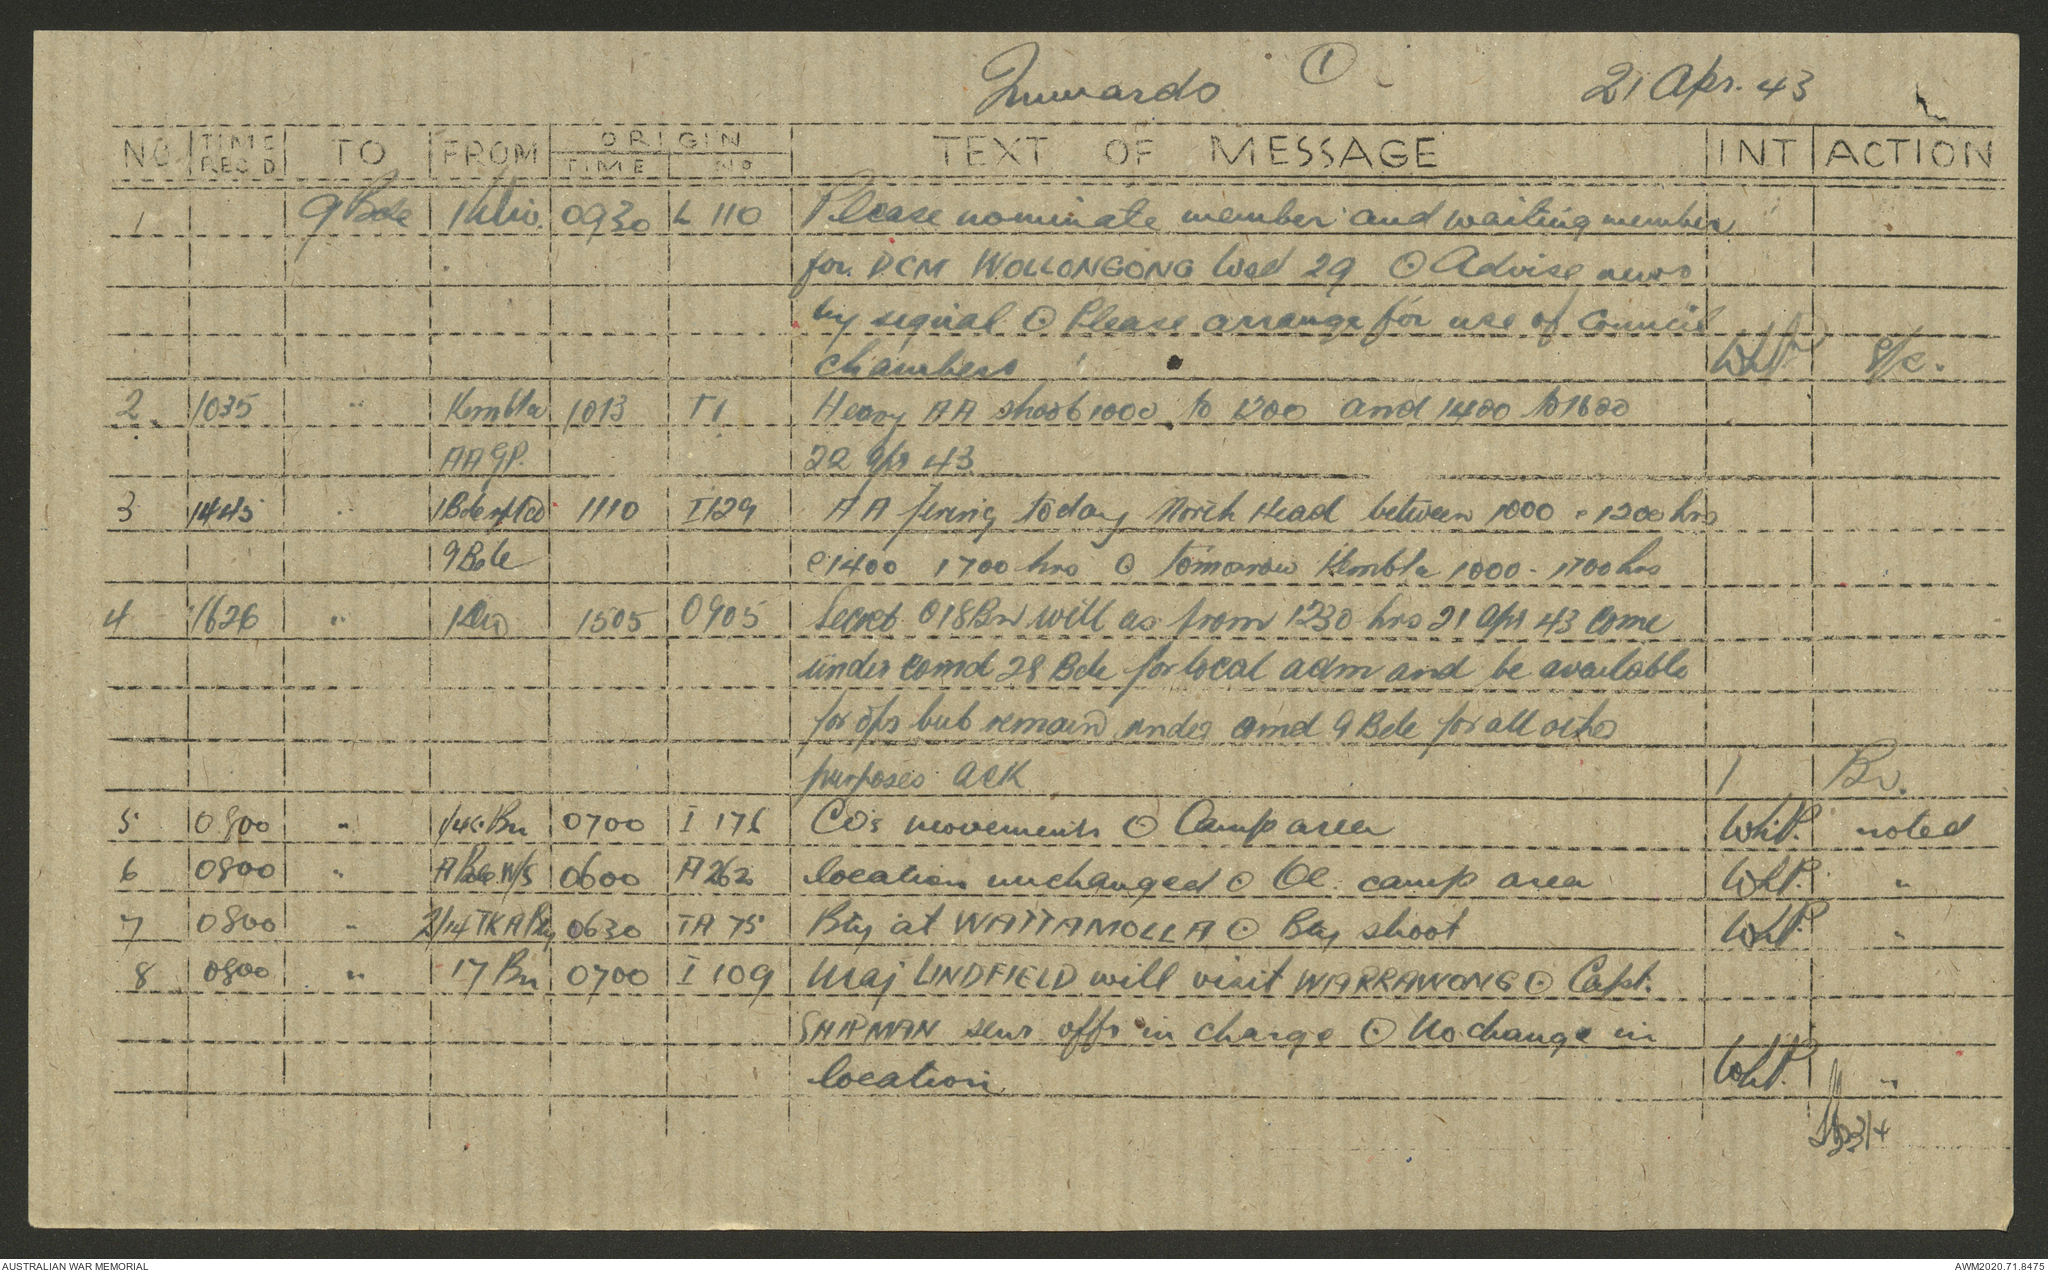 Inwards ① 21 Apr. 43
NO TIME REC'D TO FROM ORIGIN TIME NO TEXT OF MESSAGE INT ACTION
1 9 Bde 1 Div. 0930 L 110 Please nominate member and waiting member
for DCM WOLLONGONG Wed 29 ⊙ Advise
by signal ⊙ Please arrange for use of Council
chambers WhP
2 1035 " Kembla 1013 T1 Heavy AA shoot 1000 to 1200 and 1400 to 1600
AA GP. 22 Apr 43
3 1445 " 1110 I129 AA firing today North Head between 1000 - 1200 hrs
9 Bde 1400 1700 hrs ⊙ tomorrow Kembla 1000 - 1700 hrs
4 1626 " 1 Div 1505 O905 Secret ⊙ 18 Bn will as from 1230 hrs 21 Apr 43 come
under comd 28 Bde for local adm and be available
for ops but remain under comd 9 Bde for all other
purposes ACK 1
5 0800 " Bn 0700 I 176 CO's movements ⊙ Camp area WhP. noted
6 0800 " 0600 A 262 location unchanged ⊙ OC. camp area WhP. "
7 0800 " 2/14 TK A Bty 0630 TA 75 Bty at WATTAMOLLA ⊙ Bty shoot WhP. "
8 0800 " 17 Bn 0700 I 109 Maj LINDFIELD will visit WARRAWONG ⊙ Capt.
SHIPMAN senr offr in charge ⊙ No change in
location WhP. "
AUSTRALIAN WAR MEMORIAL AWM2020.71.8475